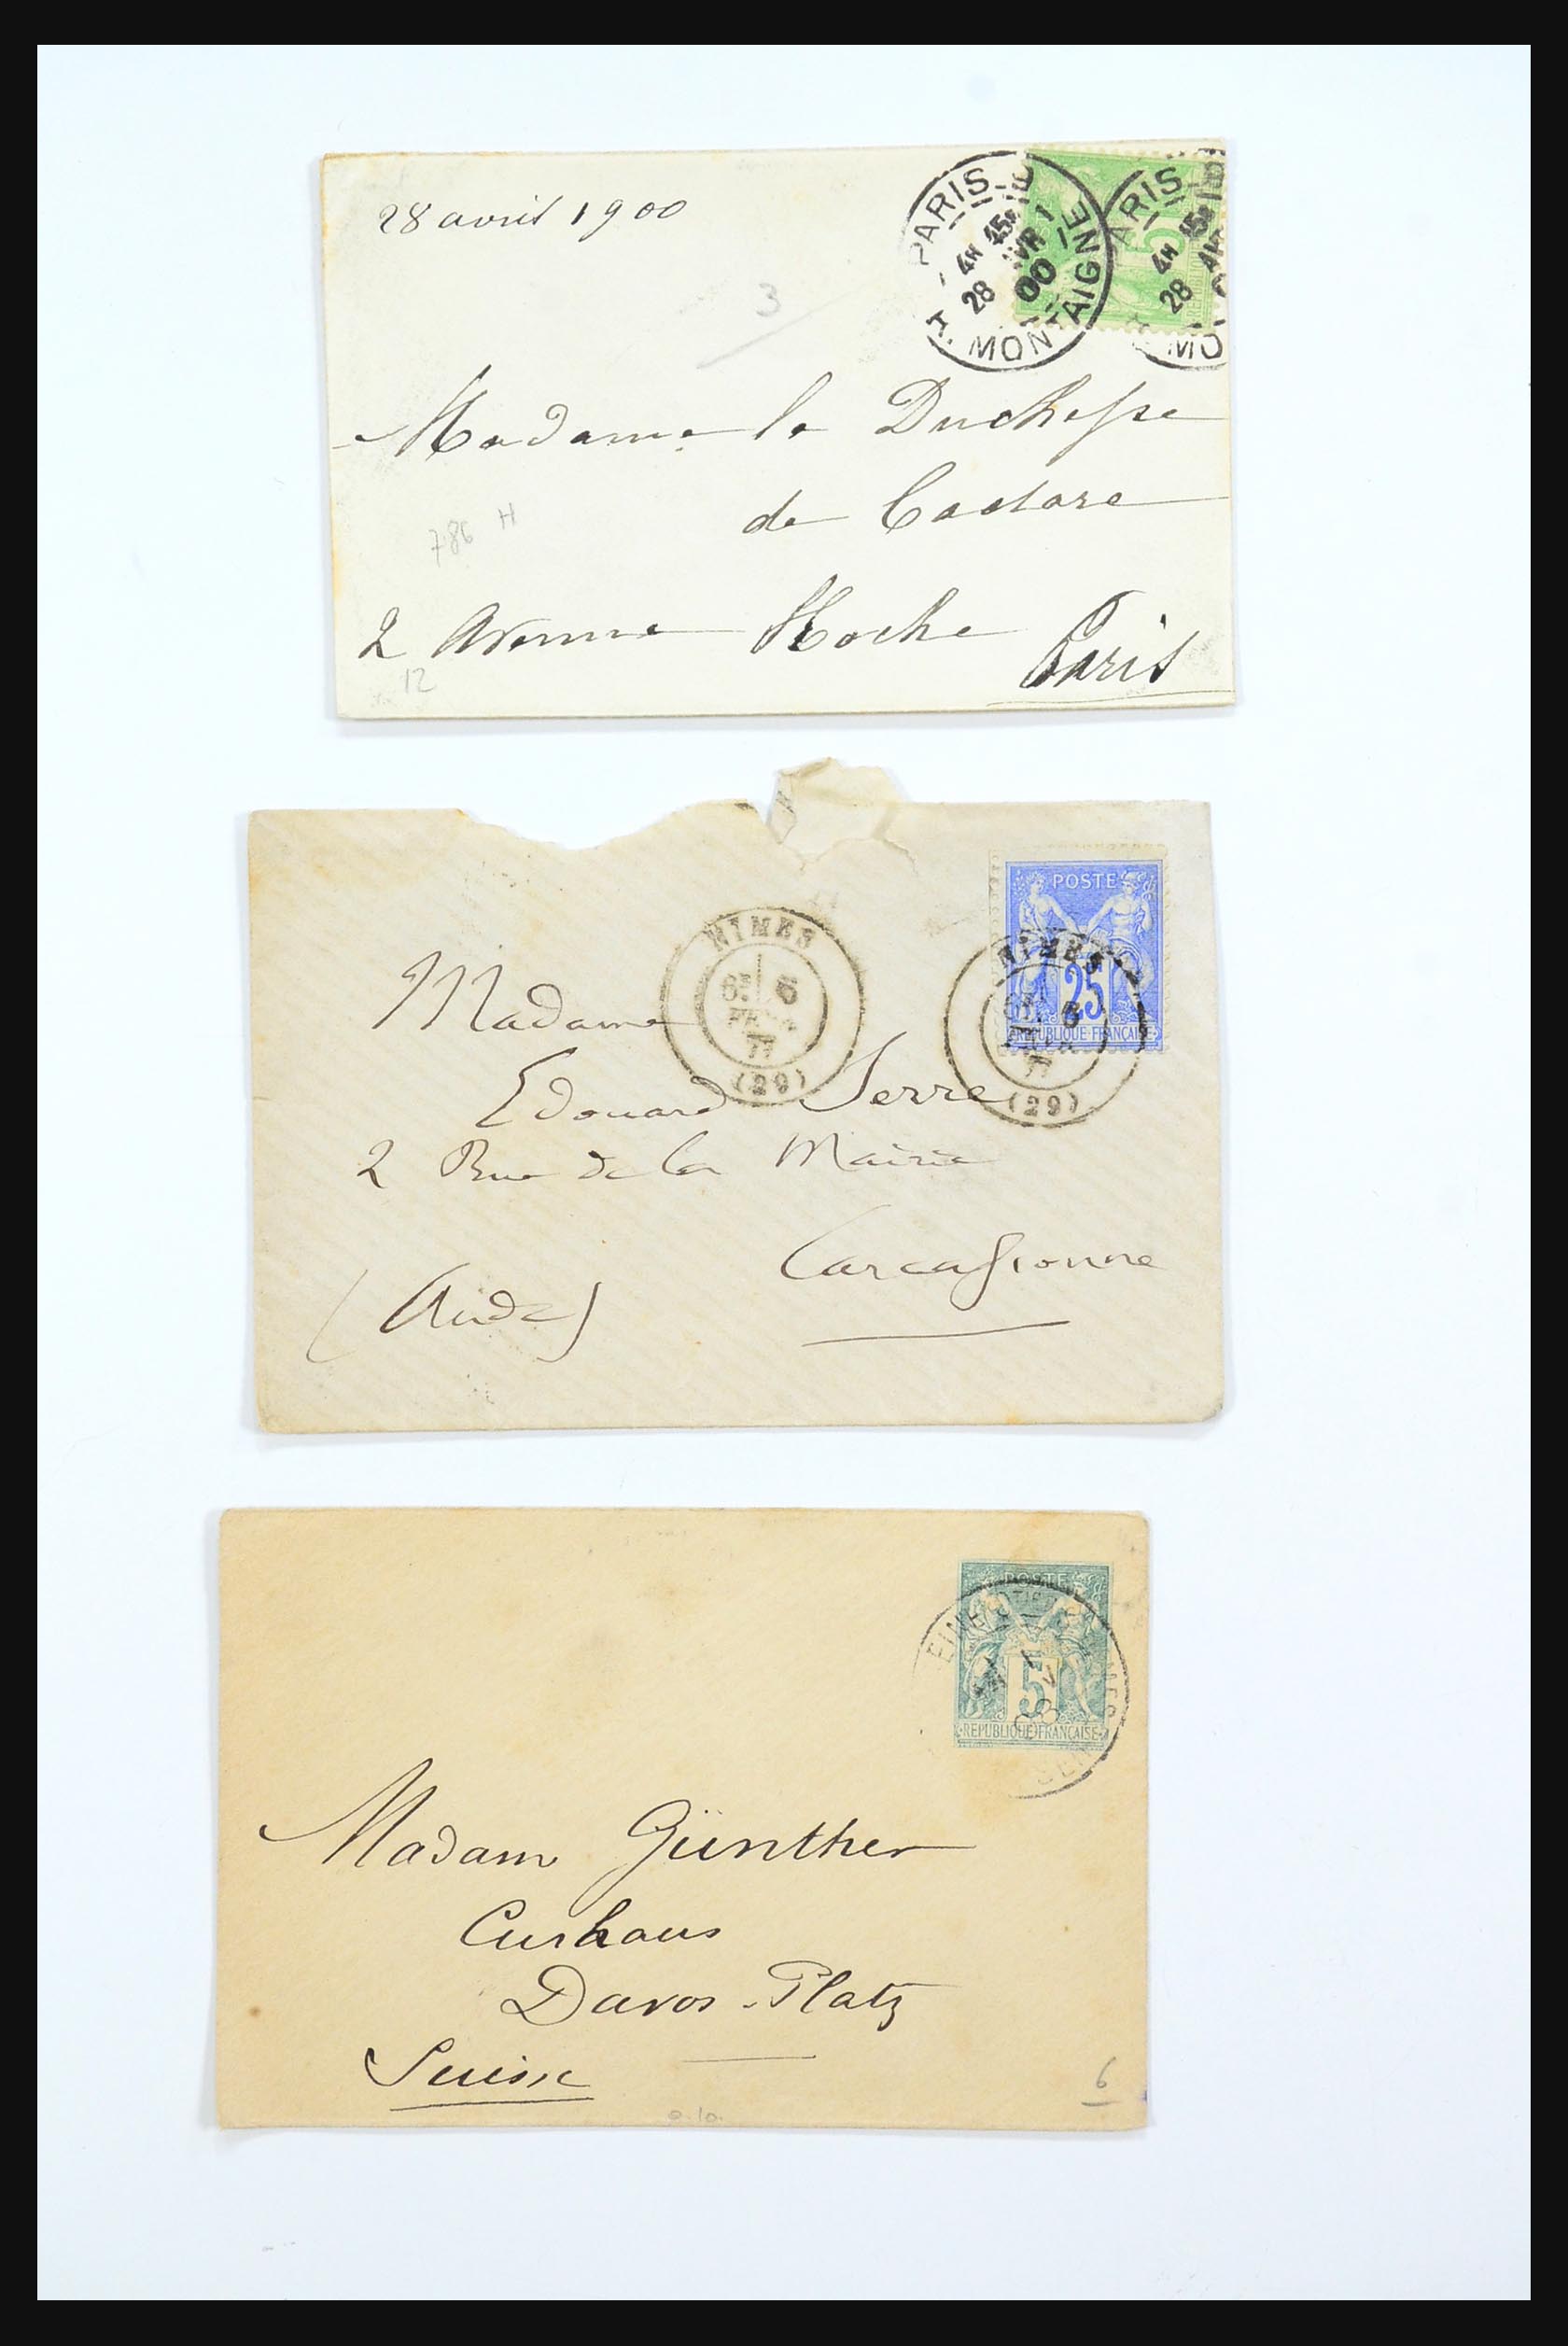 28 avril 1900
PARIS
4H 45
28 AVR
00
MONTAIGNE
5
PARIS
4H 45
28
3
Madame la Duchesse
de
786 H
2 Avenue Hoche
Paris
12
POSTE
25
REPUBLIQUE FRANÇAISE
NIMES
6
77
(29)
NIMES
77
(29)
Madame
Edouard Serre
2 Rue de la Mairie
Carcassonne
(Aude)
POSTE
5
REPUBLIQUE FRANÇAISE
Madam Günther
Curhaus
Davos-Platz
Suisse
6